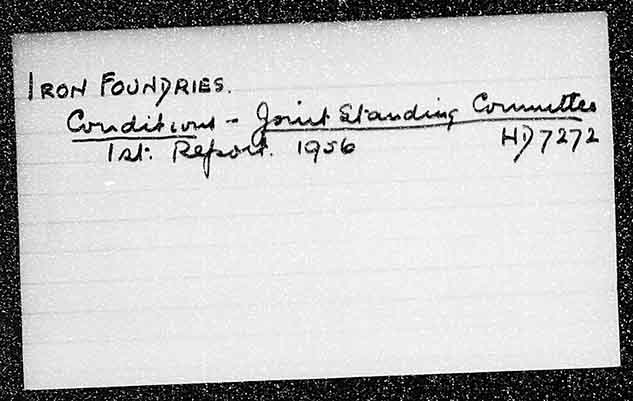 IRON FOUNDRIES.
Conditions - Joint Standing Committee
1st. Report. 1956 HD7272